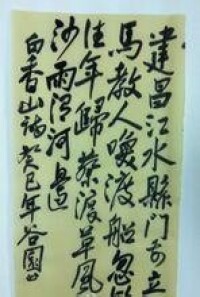 建昌江水縣門前立
馬教人喚渡船忽似
往年歸蔡渡草風
沙雨渭河邊
白香山詩癸巳年谷園書